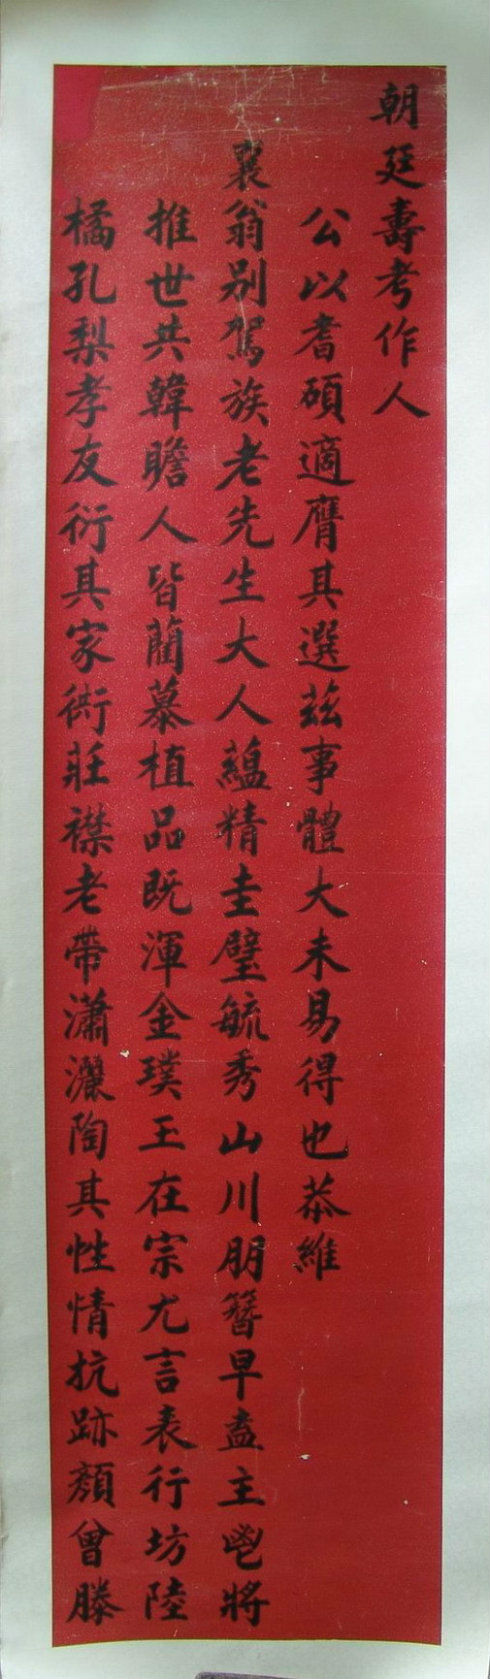 朝廷壽考作人
公以耆碩適膺其選茲事體大未易得也恭維
襄翁別駕族老先生大人蘊精圭璧毓秀山川朋簪早盍主鬯將
推世共韓瞻人皆藺慕植品既渾金璞玉在宗尤言表行坊陸
橘孔梨孝友衍其家衖莊襟老帶瀟灑陶其性情抗跡顏曾滕